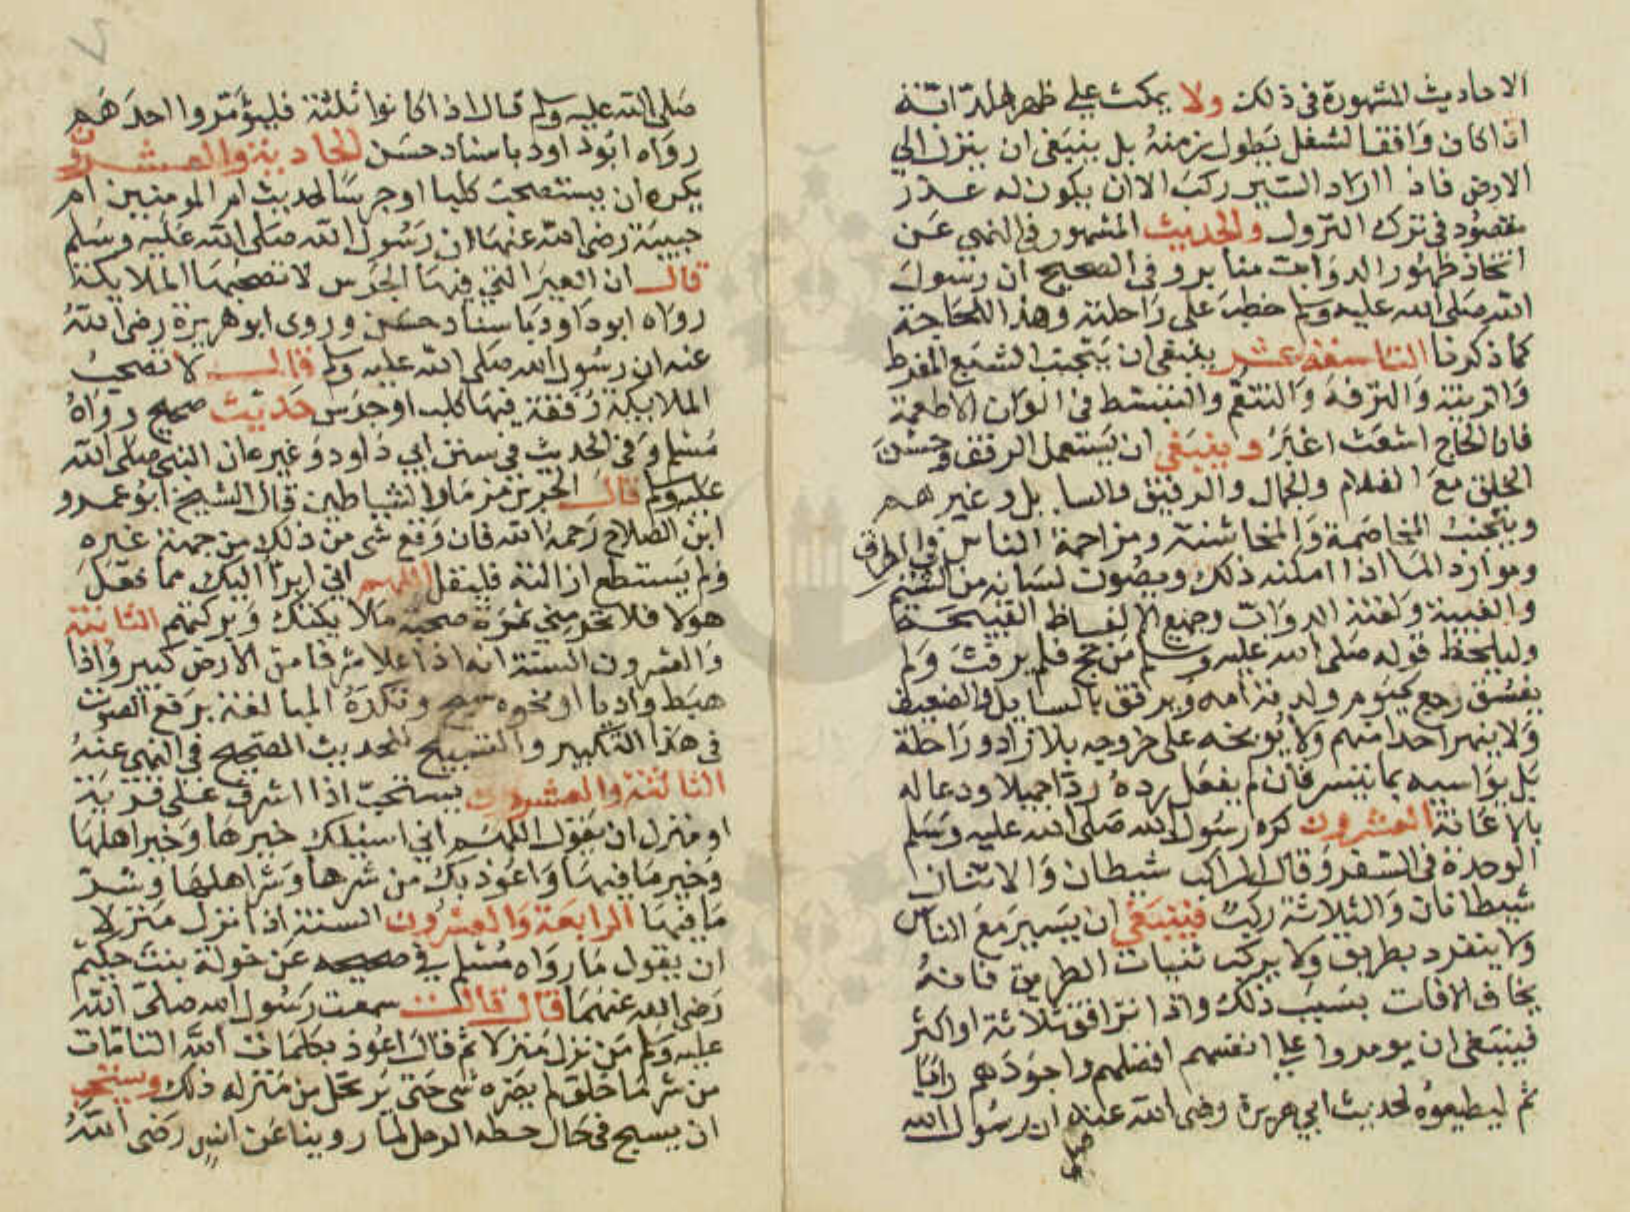 الاحاديث المشهورة في ذلك ولا يمكث على ظهر الدابة
اذا كان واقفا لشغل يطول زمنه بل ينبغي ان ينزل الى
الارض فاذا اراد السير ركب الا ان يكون له عذر
مقصود في ترك النزول والحديث المشهور في النهي عن
اتخاذ ظهور الدواب منابر وفي الصحيح ان رسول
الله صلى الله عليه وسلم خطب على راحلته وهذا للحاجة
كما ذكرنا التاسعة عشر ينبغي ان يتجنب الشبع المفرط
والزينة والترفه والتنعم والتبسط في الوان الاطعمة
فان الحاج اشعث اغبر وينبغي ان يستعمل الرفق وحسن
الخلق مع الغلام والجمال والرفيق والسايل وغيرهم
ويتجنب المخاصمة والمخاشنة ومزاحمة الناس في الطرق
وموارد الما اذا امكنه ذلك ويصون لسانه من الشتم
والغيبة ولعنة الدواب وجميع الالفاظ القبيحة
وليلحظ قوله صلى الله عليه وسلم من حج فلم يرفث ولم
يفسق رجع كيوم ولدته امه ويرفق بالسايل والضعيف
ولا ينهر احدا منهم ولا يوبخه على خروجه بلا زاد وراحلة
بل يواسيه بما تيسر فان لم يفعل رده ردا جميلا ودعا له
بالاعانة العشرون كره رسول الله صلى الله عليه وسلم
الوحدة في السفر وقال الراكب شيطان والاثنان
شيطانان والثلاثة ركب فينبغي ان يسير مع الناس
ولا ينفرد بطريق ولا يركب ثنيات الطريق فانه
يخاف الافات بسبب ذلك واذا ترافق ثلاثة او اكثر
فينبغي ان يومروا على انفسهم افضلهم واجودهم رايا
ثم ليطيعوه لحديث ابي هريرة رضى الله عنه ان رسول الله
صلى
صلى الله عليه وسلم قال اذا كانوا ثلثة فليؤمروا احدهم
رواه ابو داود باسناد حسن الحادية والعشرون
يكره ان يستصحب كلبا او جرسا لحديث ام المومنين ام
حبيبة رضى الله عنها ان رسول الله صلى الله عليه وسلم
قال ان العير التي فيها الجرس لا تصحبها الملايكة
رواه ابو داود باسناد حسن وروى ابو هريرة رضى الله
عنه ان رسول الله صلى الله عليه وسلم قال لا تصحب
الملايكة رفقة فيها كلب او جرس حديث صحيح رواه
مسلم وفي الحديث في سنن ابي داود وغيره ان النبي صلى الله
عليه وسلم قال الجرس مزمار الشيطان قال الشيخ ابو عمرو
ابن الصلاح رحمه الله فان وقع شي من ذلك من جهة غيره
ولم يستطع ازالته فليقل اللهم اني ابرأ اليك مما فعل
هولا فلا تحرمني ثمرة صحبة ملايكتك وبركتهم الثانية
والعشرون السنة انه اذا علا شرفا من الارض كبر واذا
هبط واديا او نحوه سبح وتكره المبالغة برفع الصوت
في هذا التكبير والتسبيح للحديث الصحيح في النهي عنه
الثالثة والعشرون يستحب اذا اشرف على قرية
او منزل ان يقول اللهم اني اسيلك خيرها وخير اهلها
وخير ما فيها واعوذ بك من شرها وشر اهلها وشر
ما فيها الرابعة والعشرون السنة اذا نزل منزلا
ان يقول ما رواه مسلم في صحيحه عن خولة بنت حكيم
رضى الله عنهما قال قالت سمعت رسول الله صلى الله
عليه وسلم من نزل منزلا ثم قال اعوذ بكلمات الله التامات
من شر ما خلق لم يضره شي حتى يرتحل من منزله ذلك ويستحب
ان يسبح في حال حطه الرحل لما روينا عن انس رضى الله